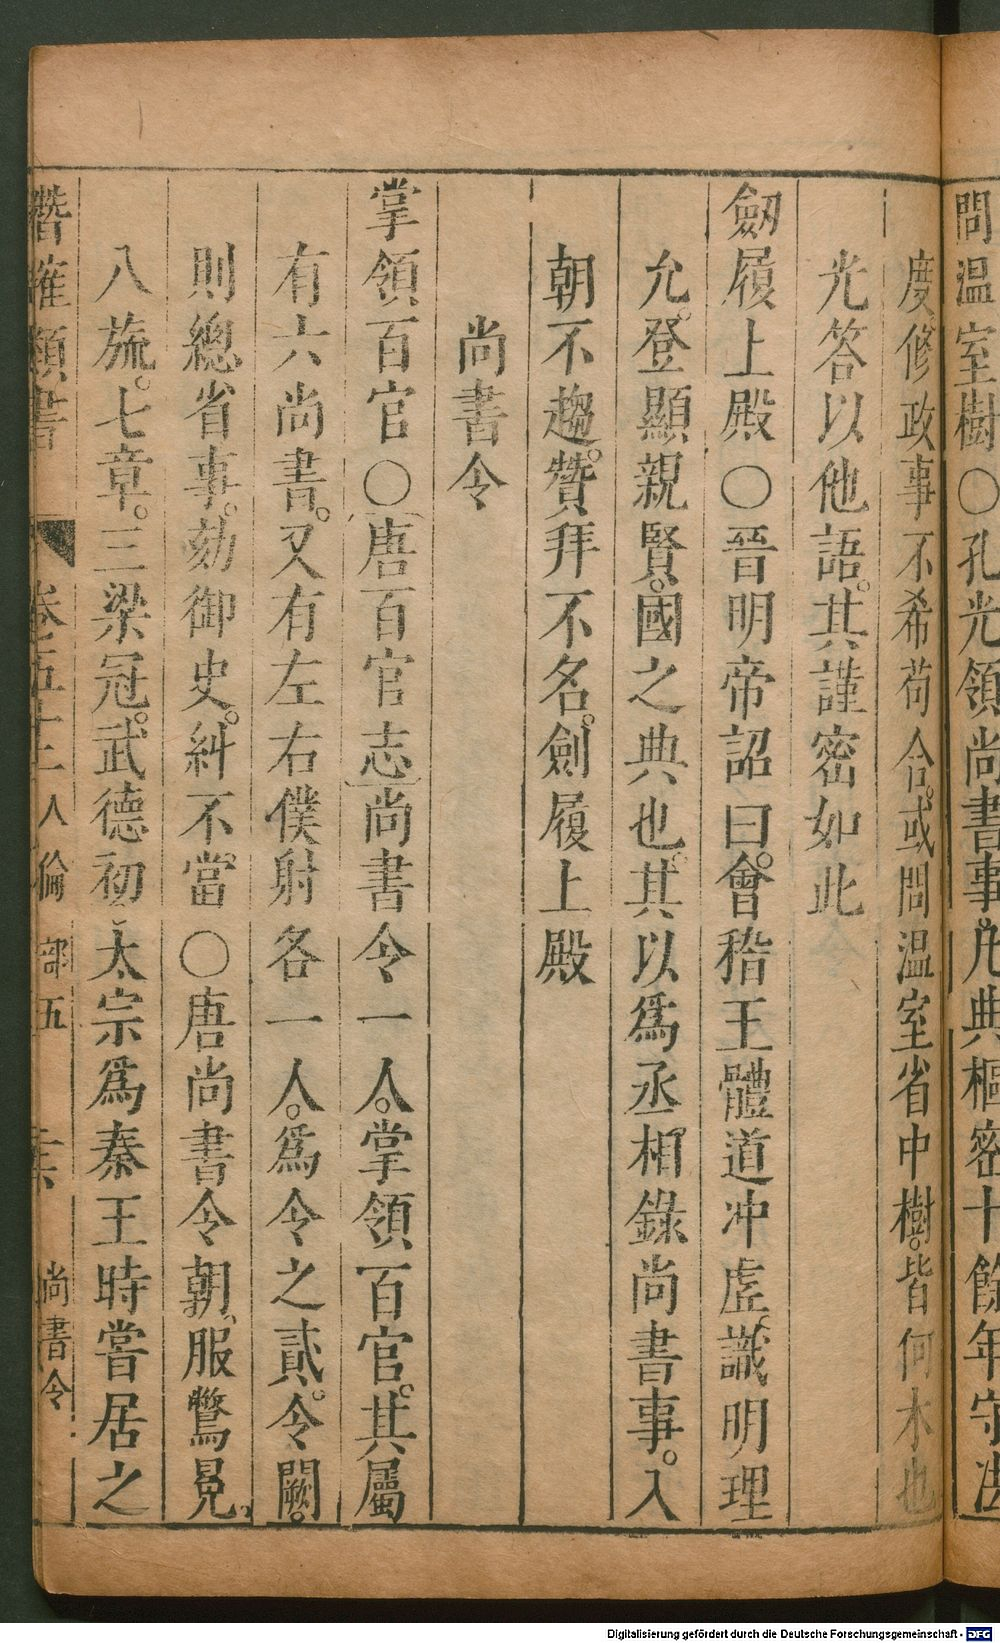 問温室樹○孔光領尚書事凡典樞密十餘年守法
度修政事不希苟合。或問温室省中樹。皆何木也
光答以他語。其謹密如此
劒履上殿○晉明帝詔曰。會稽王體道冲虛。識明理
允。登顯親賢。國之典也。其以爲丞相。錄尚書事。入
朝不趨。贊拜不名。劍履上殿
尚書令
掌領百官○唐百官志尚書令一人。掌領百官。其屬
有六尚書。又有左右僕射各一人。爲令之貳。令闕。
則總省事。劾御史。糾不當。○唐尚書令朝。服鷩冕。
八旒。七章。三梁冠。武德初。太宗爲秦王時嘗居之
潛確類書 卷五十二 人倫部五 尚書令
Digitalisierung gefördert durch die Deutsche Forschungsgemeinschaft - DFG